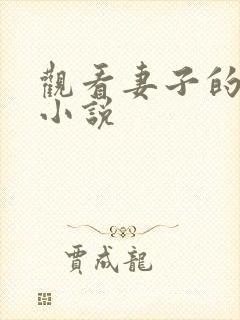 觀看妻子的
小說
賈成龍